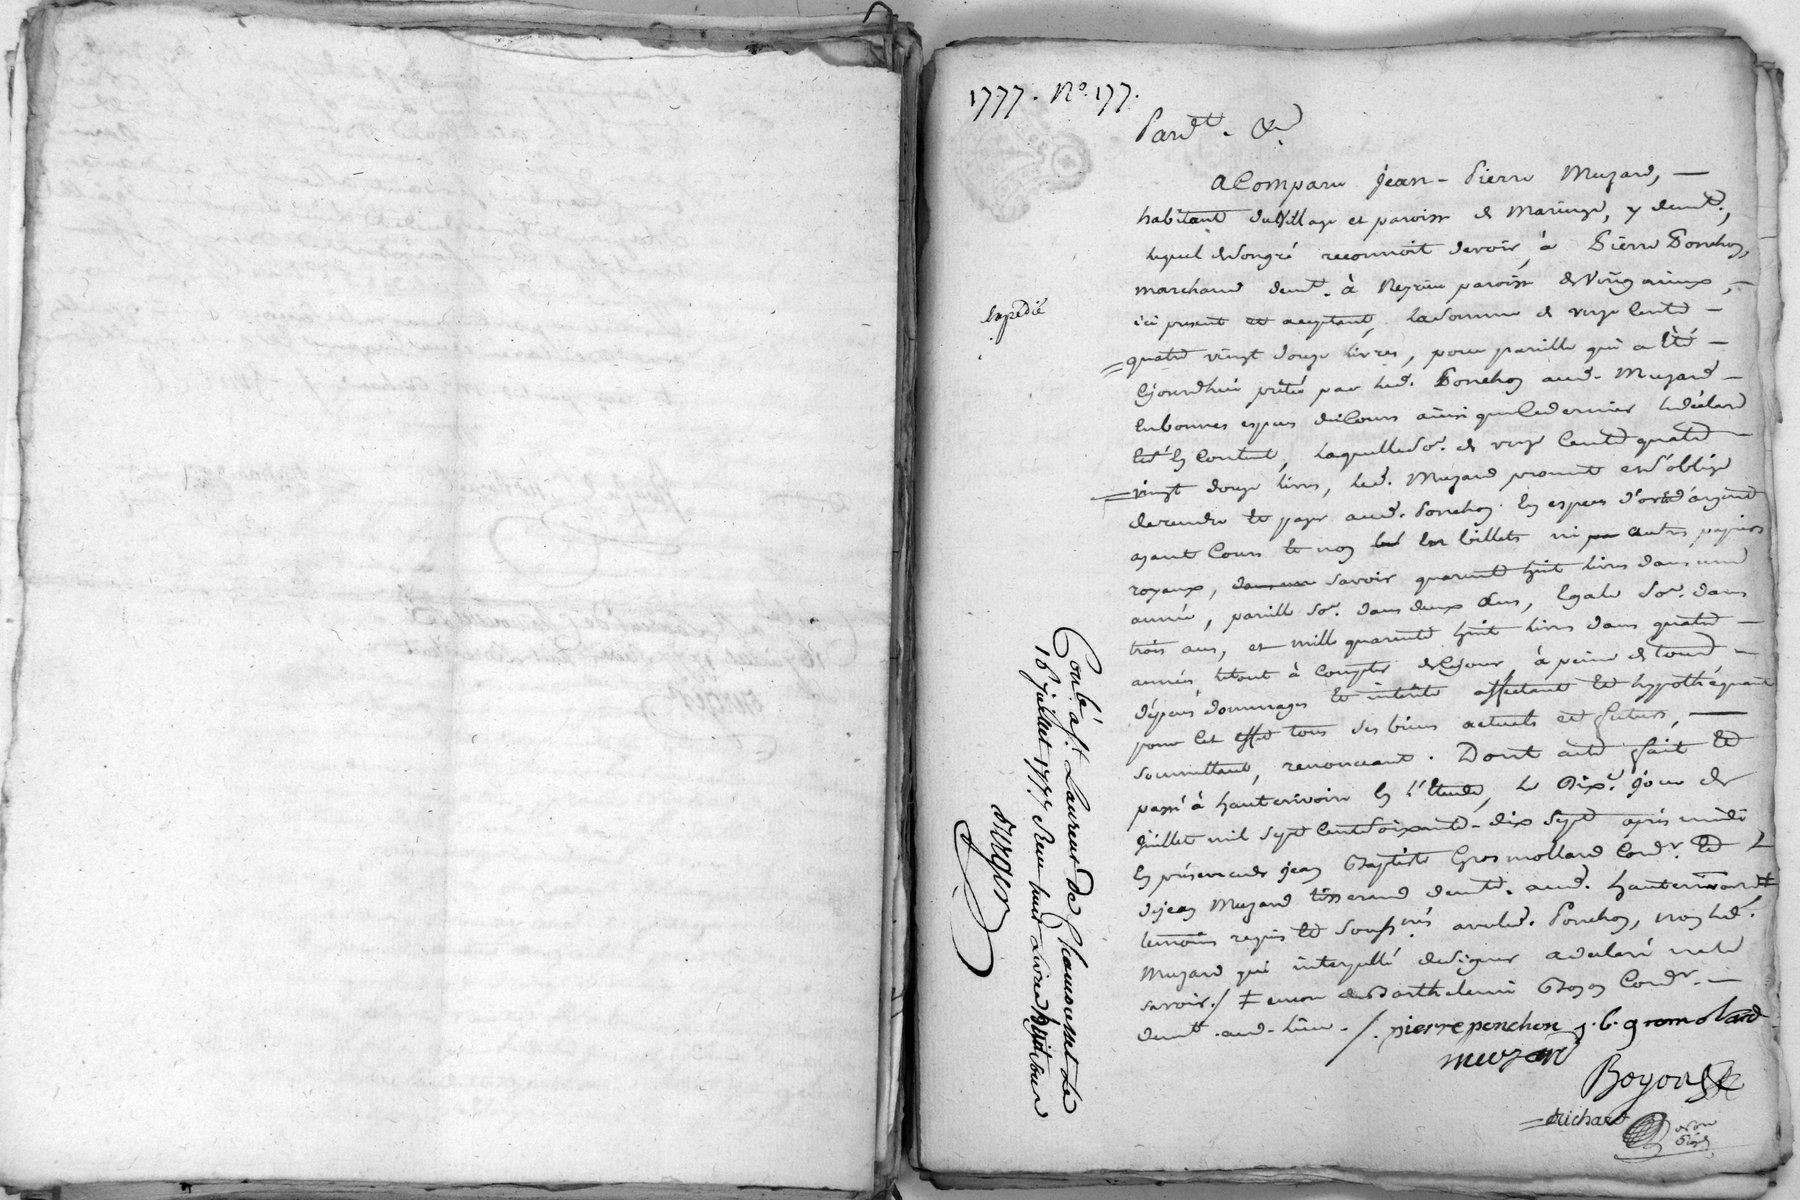 1777. N.° 177.
Pard.t &.a
a Comparu Jean-Pierre Muzard,
habitant du Village et paroisse de Maringe, y demt.,
lequel de son gré reconnoit devoir, à Pierre Ponchon,
marchand demt. à paroisse de Viricceaux,
ici présent et acceptant, la somme de onze cents
quatre vingt douze livres, pour pareille qui a été
Cejourdhui prêtée par led. Ponchon aud. Muzard
en bonnes espèces du Cours ainsi que ce dernier le déclare
et s'en Contente, laquelle so.e de onze Cents quatre
vingt douze livres, led. Muzard promet et s'oblige
de rendre et payer aud. Ponchon en espèces d'or et d'argent
ayant Cours et non en billets ni autres papiers
royaux, savoir quarente huit livres dans une
année, pareille so.e dans deux ans, Egale so.e dans
trois ans, et mille quarente huit livres dans quatre
années, le tout à Compter de Cejour, à peine de tous
dépens dommages et intérêts affectant et hypothéquant
pour Cet effet tous ses biens actuels et futurs,
soumettant, renonceant. Dont acte fait et
passé à hauterivoire En l'étude, le Dix.e jour de
juillet mil sept Cent soixante-dix sept après midi
En présence de jean Baptiste Grosmollard Cord.r et
de jean Muzard tisserand demt. aud. hauterivoire ‡
témoins requis et soussignés avec led. Ponchon, non led.
Muzard qui interpellé de signer a déclaré ne le
savoir ./ ‡ encor de Barthelemi Boyon Cord.r
demt. aud. lieu. /. pierre ponchon j. b. gromolard
muzard
Boyon
Richard
Expedié
Conle à St. Laurent De Chamousset Le
16 juillet 1777 Reçu huit Livres huit sous